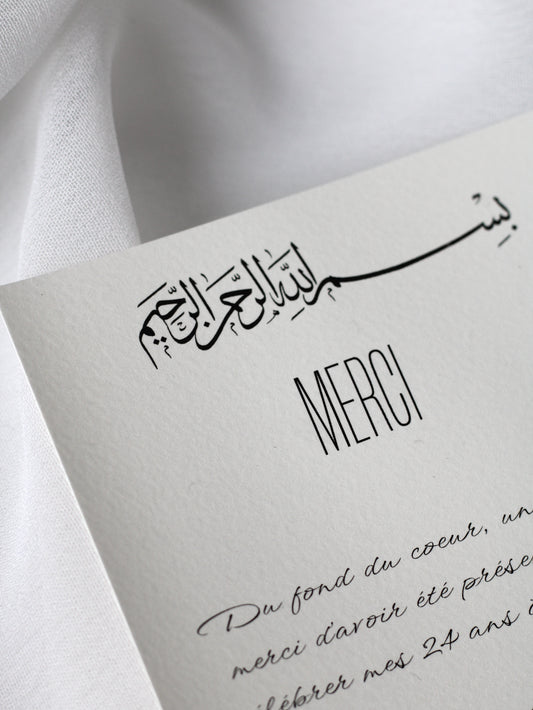 بِسْمِ اللَّهِ الرَّحْمَنِ الرَّحِيمِ
MERCI
Du fond du coeur, un
merci d'avoir été prése
élébrer mes 24 ans